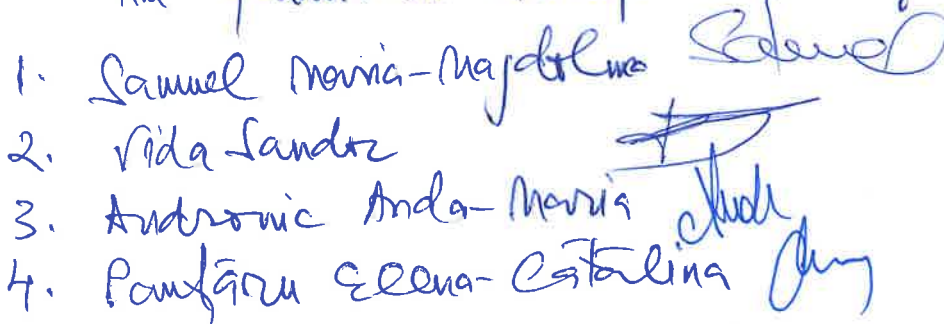 1. Samuel Maria-Magdolna
2. Vida Sandor
3. Andronic Anda-Maria
4. Panfăru Elena-Cătălina